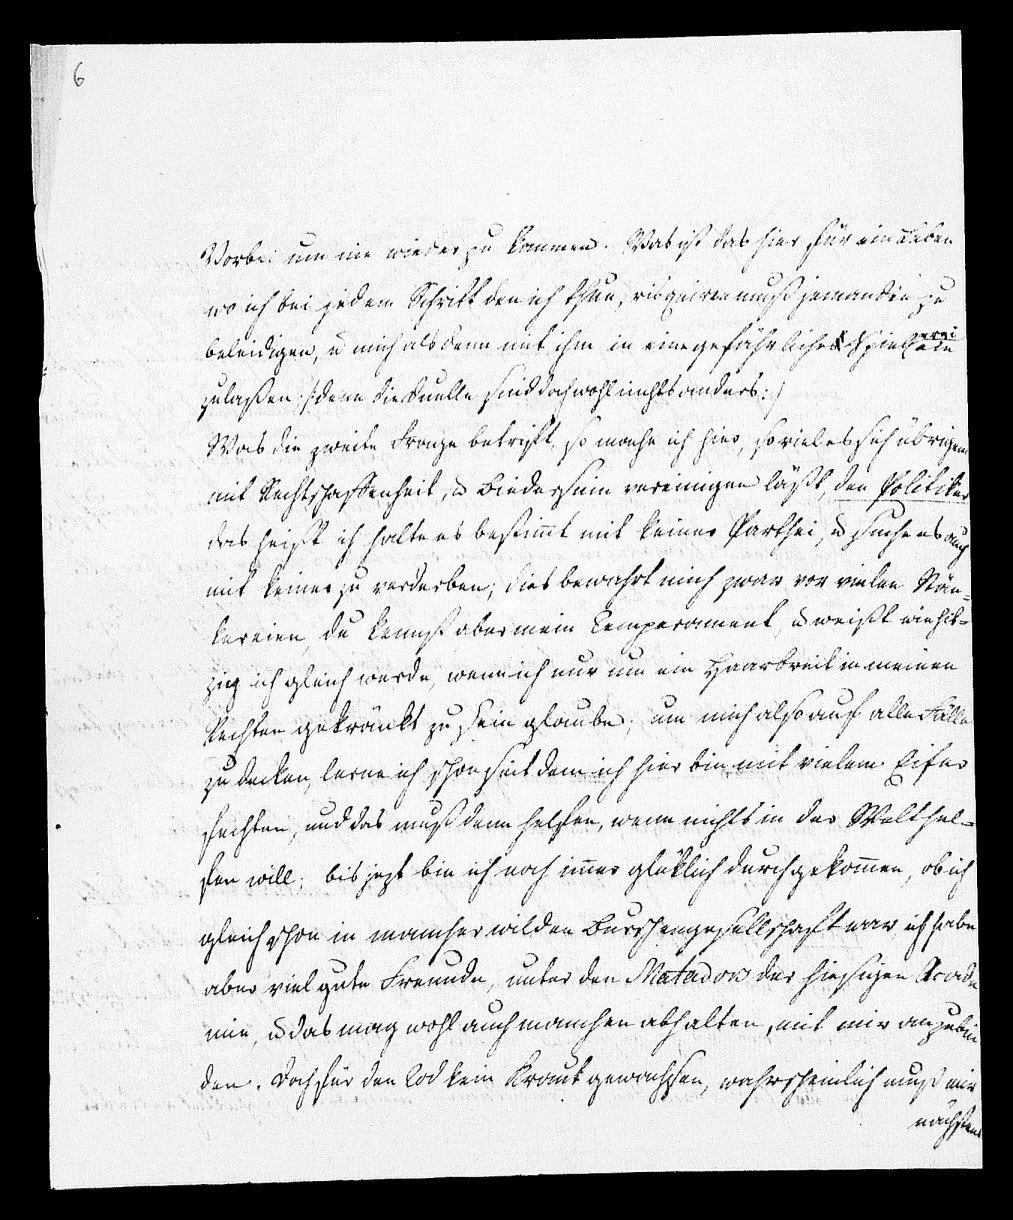 6
Vorbei um nie wieder zu kommen. Was ist das hier für ein Leben
wo ich bei jedem Schritt den ich thue, risquiren muß jemanden zu
beleidigen, u mich alsdenn mit ihm in eine gefährliche Spielerei ein
zulaßen :/denn die Duelle sind doch wohl nichts anders:/
Was die zweite Frage betrift, so mache ich hier, so viel es sich übrigens
mit Rechtschaffenheit, u Biedersinn vereinigen läßt, den Politiker
das heißt ich halte es bestim̅t mit keiner Parthei, u suche es auch
mit keiner zu verderben; dies bewahrt mich zwar vor vielen Stän-
kereien, du kennst aber mein Temperament, u weißt wie hit-
zig ich gleich werde, wenn ich nur um ein Haarbreit in meinen
Rechten gekränkt zu sein glaube; um mich also auf alle Fälle
zu decken, lerne ich schon seit dem ich hier bin mit vielem Eifer
fechten, und das muß denn helfen, wenn nichts in der Welt hel-
fen will; bis jezt bin ich noch im̅er glüklich durchgekom̅en, ob ich
gleich schon in mancher wilden Burschengesellschaft war, ich habe
aber viel gute Freunde, unter den Matadors der hiesigen Acade
mie, u das mag wohl auch manchen abhalten, mit mir anzubin
den. Doch für den Tod kein Kraut gewachsen, wahrscheinlich muß mir
nächstens